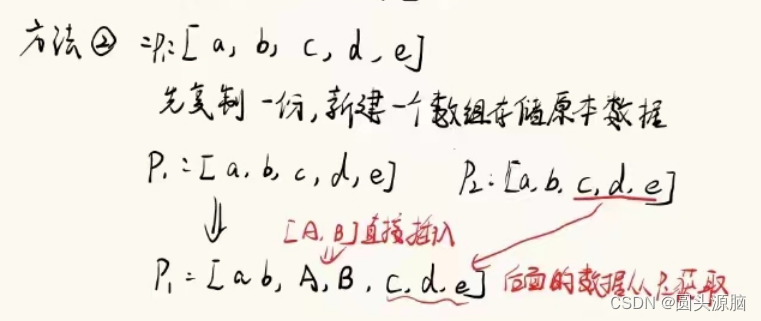 方法② P₁:[a, b, c, d, e]
先复制一份,新建一个数组存储原本数据
P₁:[a, b, c, d, e] P₂:[a, b, c, d, e]
[A, B]直接插入
P₁=[a b, A, B, c, d, e] 后面的数据从P₂获取
CSDN @圆头源脑